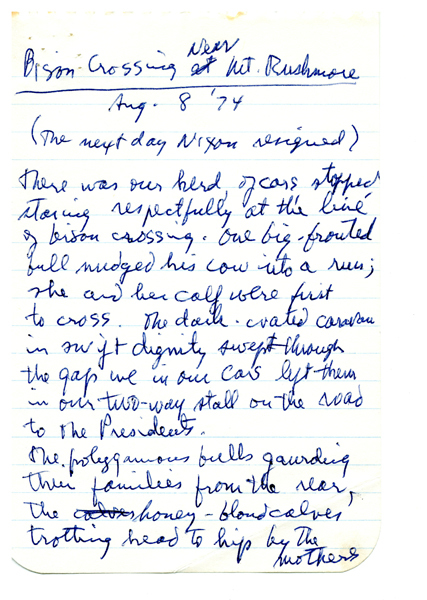 Bison Crossing at Near Mt. Rushmore
Aug. 8 '74
(The next day Nixon resigned)
There was our herd, of cars stopped
staring respectfully at the line
of bison crossing. One big-fronted
bull nudged his cow into a run;
She and her calf were first
to cross. The dark-coated caravan
in swift dignity swept through
the gap we in our cars left them
in our two-way stall on the road
to the Presidents.
The polygamous bulls gaurding
their families from the rear,
the calves honey-blond calves
trotting head to hip by the
mothers